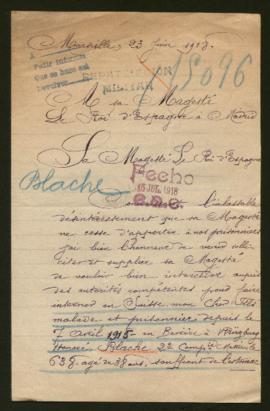 Marseille, 23 Juin 1918.
A
Pedir informes
que se haga así
devolver
REPATRIACION
MILITAR
15096
A sa Majesté
Le Roi d'Espagne à Madrid
Sa Majesté Le Roi d'Espagne
Fecho
15 JUL. 1918
Blache
l'inlassable
désintéressement que sa Majesté
ne cesse d'apporter à nos prisonniers
j'ai bien l'honneur de venir solli-
citer et supplier sa Majesté
de vouloir bien intervenir auprès
des autorités compétentes pour faire
interner en Suisse mon cher fils
malade et prisonnier depuis le
7 avril 1915 en Bavière à
Blache 2e Compie
638. agé de 38 ans, souffrant de l'estomac